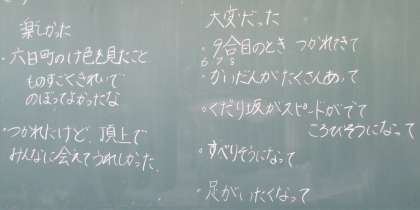 楽しかった
・六日町のけ色を見たこと
ものすごくきれいで
のぼってよかったな
・つかれたけど、頂上で
みんなに会えてうれしかった。
大変だった
・9合目のとき つかれてきて
6 7 8
・かいだんがたくさんあって
・くだり坂がスピードがでて
ころびそうになって
・すべりそうになって
・足がいたくなって